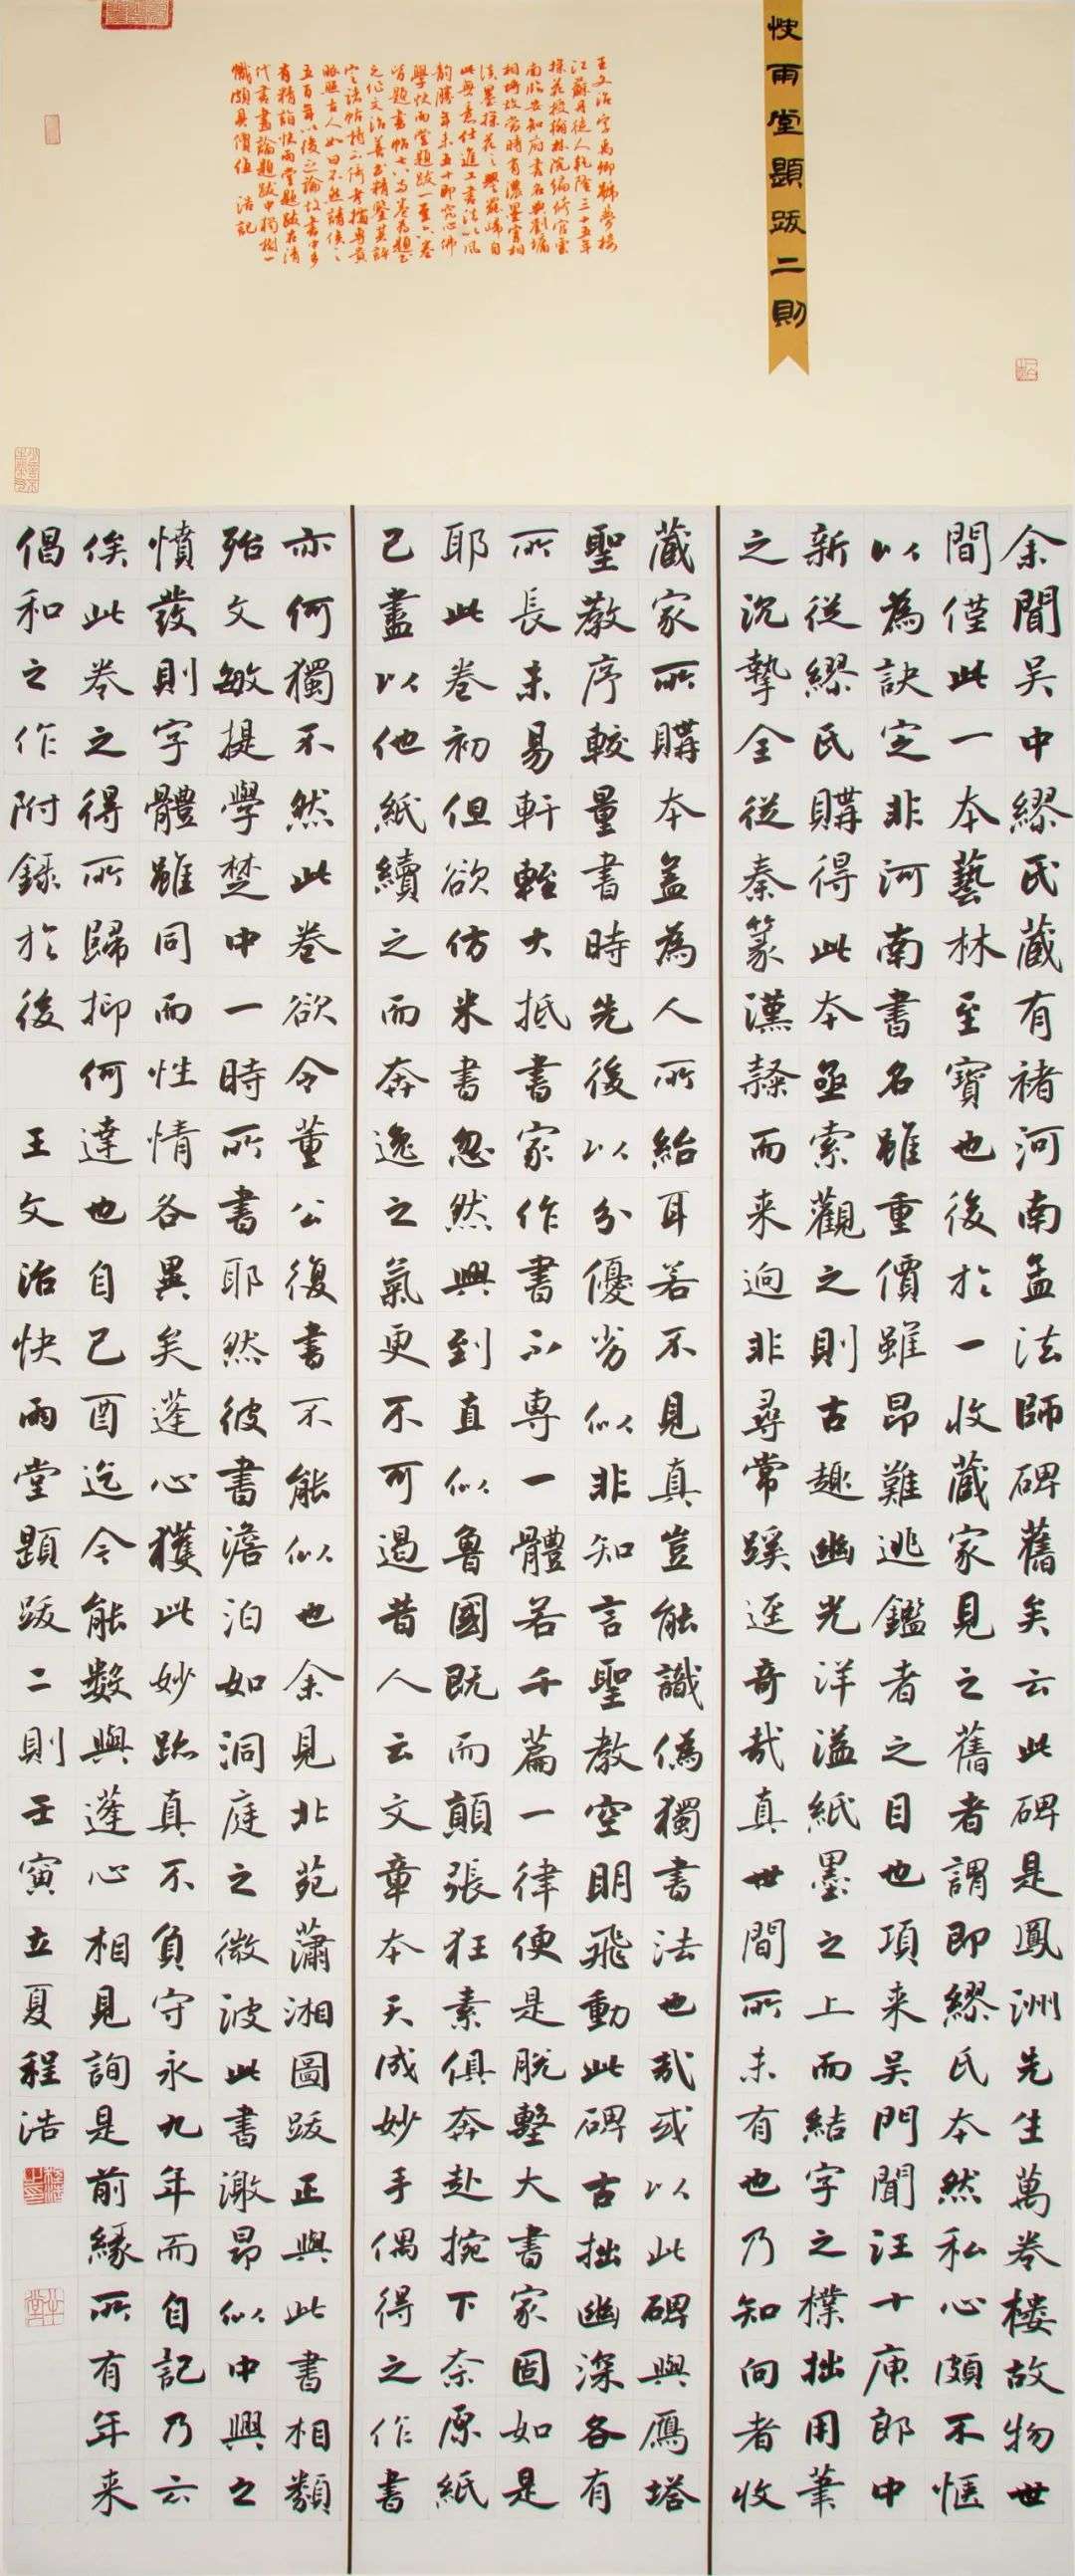 快雨堂題跋二則
王文治字禹卿號夢樓
江蘇丹徒人乾隆三十五年
探花授翰林院編修官雲
南臨安知府書名與劉墉
相埒故當時有濃墨宰相
淡墨探花之譽罷歸自
此無意仕進工書法以風
韵勝年未五十即究心佛
學快雨堂題跋一至六卷
皆題書帖七八為卷為題畫
之作文治善書精鑒其評
定法帖精
眼照古人如曰不然請俟之
五百年以後之論故書中多
有精詣快雨堂題跋在清
代書畫論題跋中獨樹一
幟頗具價值 浩記
余聞吴中繆氏藏有褚河南孟法師碑舊矣云此碑是鳳洲先生萬卷樓故物世
間僅此一本藝林至寶也後於一收藏家見之舊者謂即繆氏本然私心頗不愜
以為訣定非河南書名雖重價雖昂難逃鑑者之目也項来吴門聞汪十庚郎中
新從繆氏購得此本亟索觀之則古趣幽光洋溢紙墨之上而結字之樸拙用筆
之沉摯全從秦篆漢隸而来迥非尋常蹊逕奇哉真世間所未有也乃知向者收
藏家所購本盖為人所紿耳若不見真豈能識偽獨書法也哉或以此碑與鴈塔
聖教序較量書時先後以分優劣似非知言聖教空明飛動此碑古拙幽深各有
所長未易軒輊大抵書家作書不專一體若千篇一律便是脱墼大書家固如是
耶此卷初但欲仿米書忽然興到直似魯國既而顛張狂素俱奔赴捥下奈原紙
已盡以他紙續之而奔逸之氣更不可遏昔人云文章本天成妙手偶得之作書
亦何獨不然此卷欲令董公復書不能似也余見北苑瀟湘圖跋正與此書相類
殆文敏提學楚中一時所書耶然彼書澹泊如洞庭之微波此書激昂似中興之
憤發則字體雖同而性情各異矣蓬心獲此妙跡真不負守永九年而自記乃云
俟此卷之得所歸抑何達也自己酉迄今能数與蓬心相見詢是前緣所有年来
倡和之作附錄於後 王文治快雨堂題跋二則壬寅立夏程浩